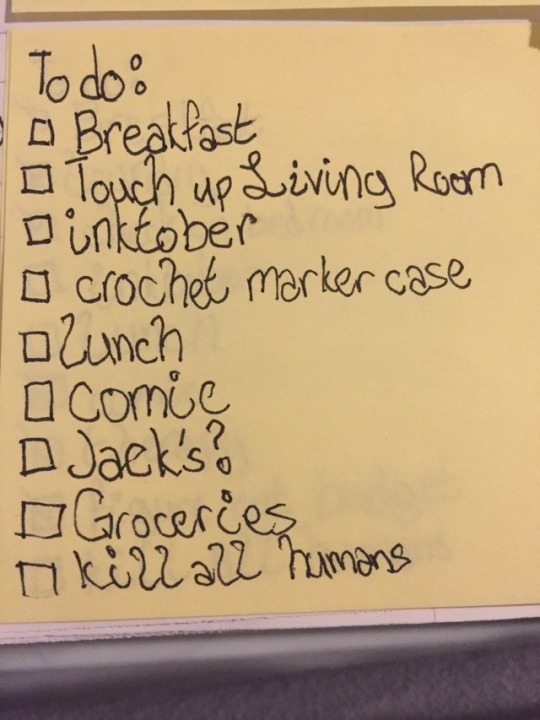 To do:
Breakfast
Touch up Living Room
inktober
crochet marker case
Lunch
comic
Jack's?
Groceries
kill all humans